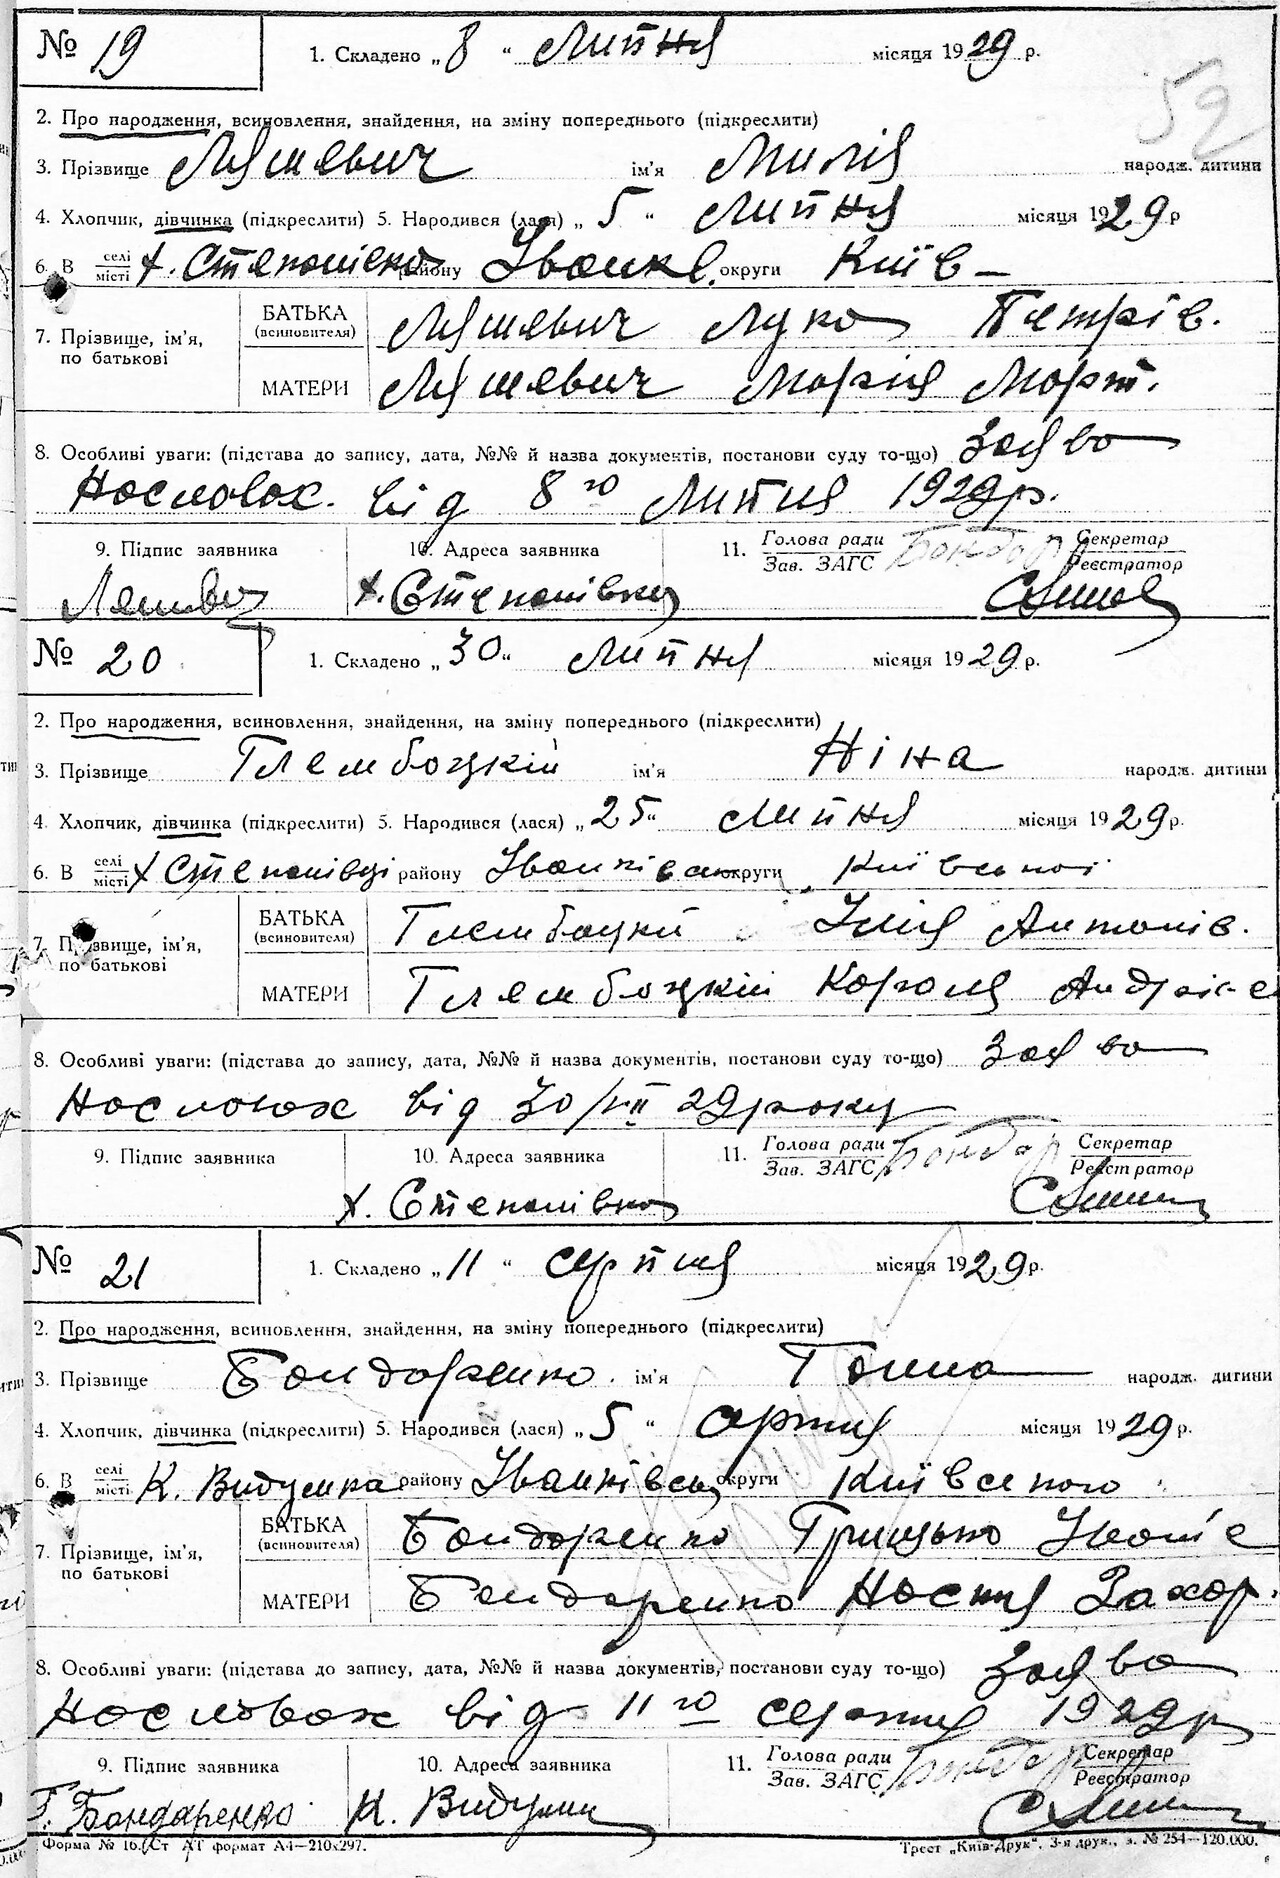 № 19
1. Складено „ 8 “ Липня місяця 1929 р.
52
2. Про народження, всиновлення, знайдення, на зміну попереднього (підкреслити)
3. Прізвище Ляшевич ім'я Милія народж. дитини
4. Хлопчик, дівчинка (підкреслити) 5. Народився (лася) „ 5 “ Липня місяця 1929 р
6. В селі місті х. Степанівка району Іванків. округи Київ –
7. Прізвище, ім'я, по батькові
БАТЬКА (всиновителя) Ляшевич Лука Петрів.
МАТЕРИ Ляшевич Марія Март.
8. Особливі уваги: (підстава до запису, дата, №№ й назва документів, постанови суду то-що) Заява
на словах. від 8го Липня 1929р.
9. Підпис заявника 10. Адреса заявника 11. Голова ради Зав. ЗАГС Бондар Секретар Реєстратор
х. Степанівка
№ 20
1. Складено „ 30 “ Липня місяця 1929 р.
2. Про народження, всиновлення, знайдення, на зміну попереднього (підкреслити)
3. Прізвище Глембоцкій ім'я Ніна народж. дитини
4. Хлопчик, дівчинка (підкреслити) 5. Народився (лася) „ 25 “ Липня місяця 1929 р.
6. В селі місті х Степанівці району Іванківськ округи Київської
7. Прізвище, ім'я, по батькові
БАТЬКА (всиновителя) Глембацкий Ілія Антонів.
МАТЕРИ Глембоцкій Кароля Андріє
8. Особливі уваги: (підстава до запису, дата, №№ й назва документів, постанови суду то-що) Заява
на словах від 30/VII 29 року
9. Підпис заявника 10. Адреса заявника 11. Голова ради Зав. ЗАГС Бондар Секретар Реєстратор
х. Степанівка
№ 21
1. Складено „ 11 “ серпня місяця 1929 р.
2. Про народження, всиновлення, знайдення, на зміну попереднього (підкреслити)
3. Прізвище Бондаренко. ім'я Ганна народж. дитини
4. Хлопчик, дівчинка (підкреслити) 5. Народився (лася) „ 5 “ серпня місяця 1929 р.
6. В селі місті К. Видумка району Іванківськ округи Київського
7. Прізвище, ім'я, по батькові
БАТЬКА (всиновителя) Бондаренко Грицько Іванів
МАТЕРИ Бондаренко Настя Захар.
8. Особливі уваги: (підстава до запису, дата, №№ й назва документів, постанови суду то-що) Заява
на словах від 11го серпня 1929р
9. Підпис заявника 10. Адреса заявника 11. Голова ради Зав. ЗАГС Бондар Секретар Реєстратор
Г. Бондаренко К. Видумка
Форма № 16. Ст АТ формат А4—210x297. Трест „Київ-Друк“, 3-я друк., з. № 254—120.000.